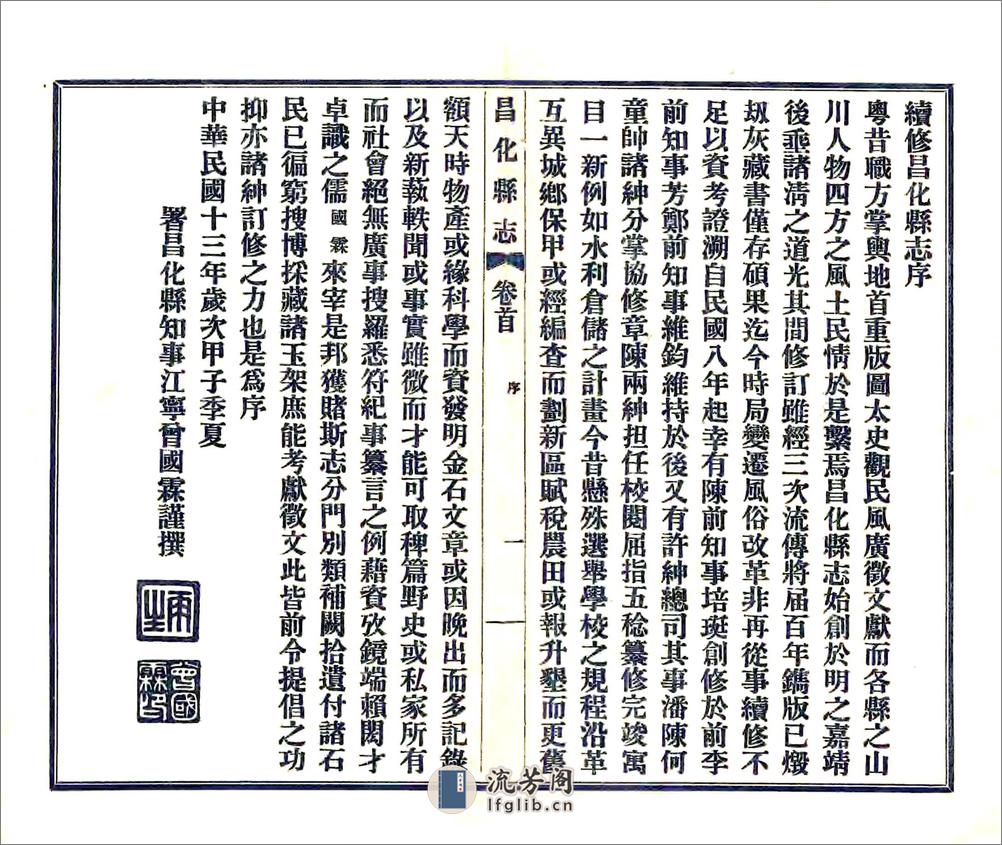 續修昌化縣志序
粵昔職方掌輿地首重版圖太史觀民風廣徵文獻而各縣之山
川人物四方之風土民情於是繫焉昌化縣志始創於明之嘉靖
後垂諸淸之道光其間修訂雖經三次流傳將屆百年鐫版已燬
刼灰藏書僅存碩果迄今時局變遷風俗改革非再從事續修不
足以資考證溯自民國八年起幸有陳前知事培珽創修於前李
前知事芳鄭前知事維鈞維持於後又有許紳總司其事潘陳何
童帥諸紳分掌協修章陳兩紳担任校閱屈指五稔纂修完竣寓
目一新例如水利倉儲之計畫今昔懸殊選舉學校之規程沿革
互異城鄉保甲或經編查而劃新區賦稅農田或報升墾而更舊
昌化縣志
卷首
序
一
額天時物產或緣科學而資發明金石文章或因晚出而多記錄
以及新蓺軼聞或事實雖微而才能可取稗篇野史或私家所有
而社會絕無廣事搜羅悉符紀事纂言之例藉資攷鏡端賴閎才
卓識之儒國霖來宰是邦獲賭斯志分門別類補闕拾遺付諸石
民已徧窮搜博採藏諸玉架庶能考獻徵文此皆前令提倡之功
抑亦諸紳訂修之力也是爲序
中華民國十三年歲次甲子季夏
署昌化縣知事江寧曾國霖謹撰
曾國霖印
流芳阁
lfglib.cn